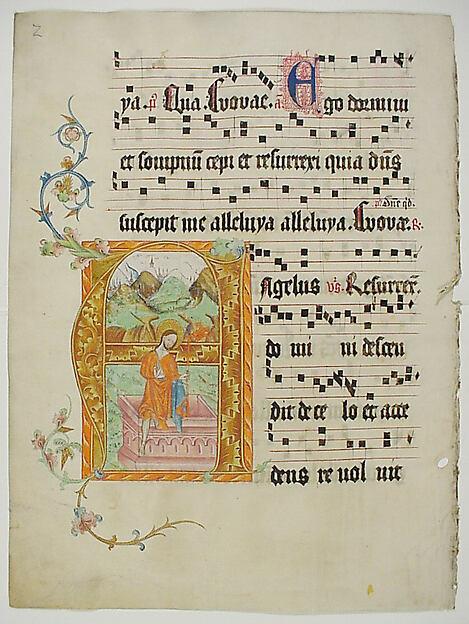 2
ya. Qua. Evovae. Ego dormivi
et sompnum cepi et resurrexi quia dns
suscepit me alleluya alleluya. Evovae.
Angelus vs. Resurrex.
do mi ni descen
dit de ce lo et acce
dens re vol vit